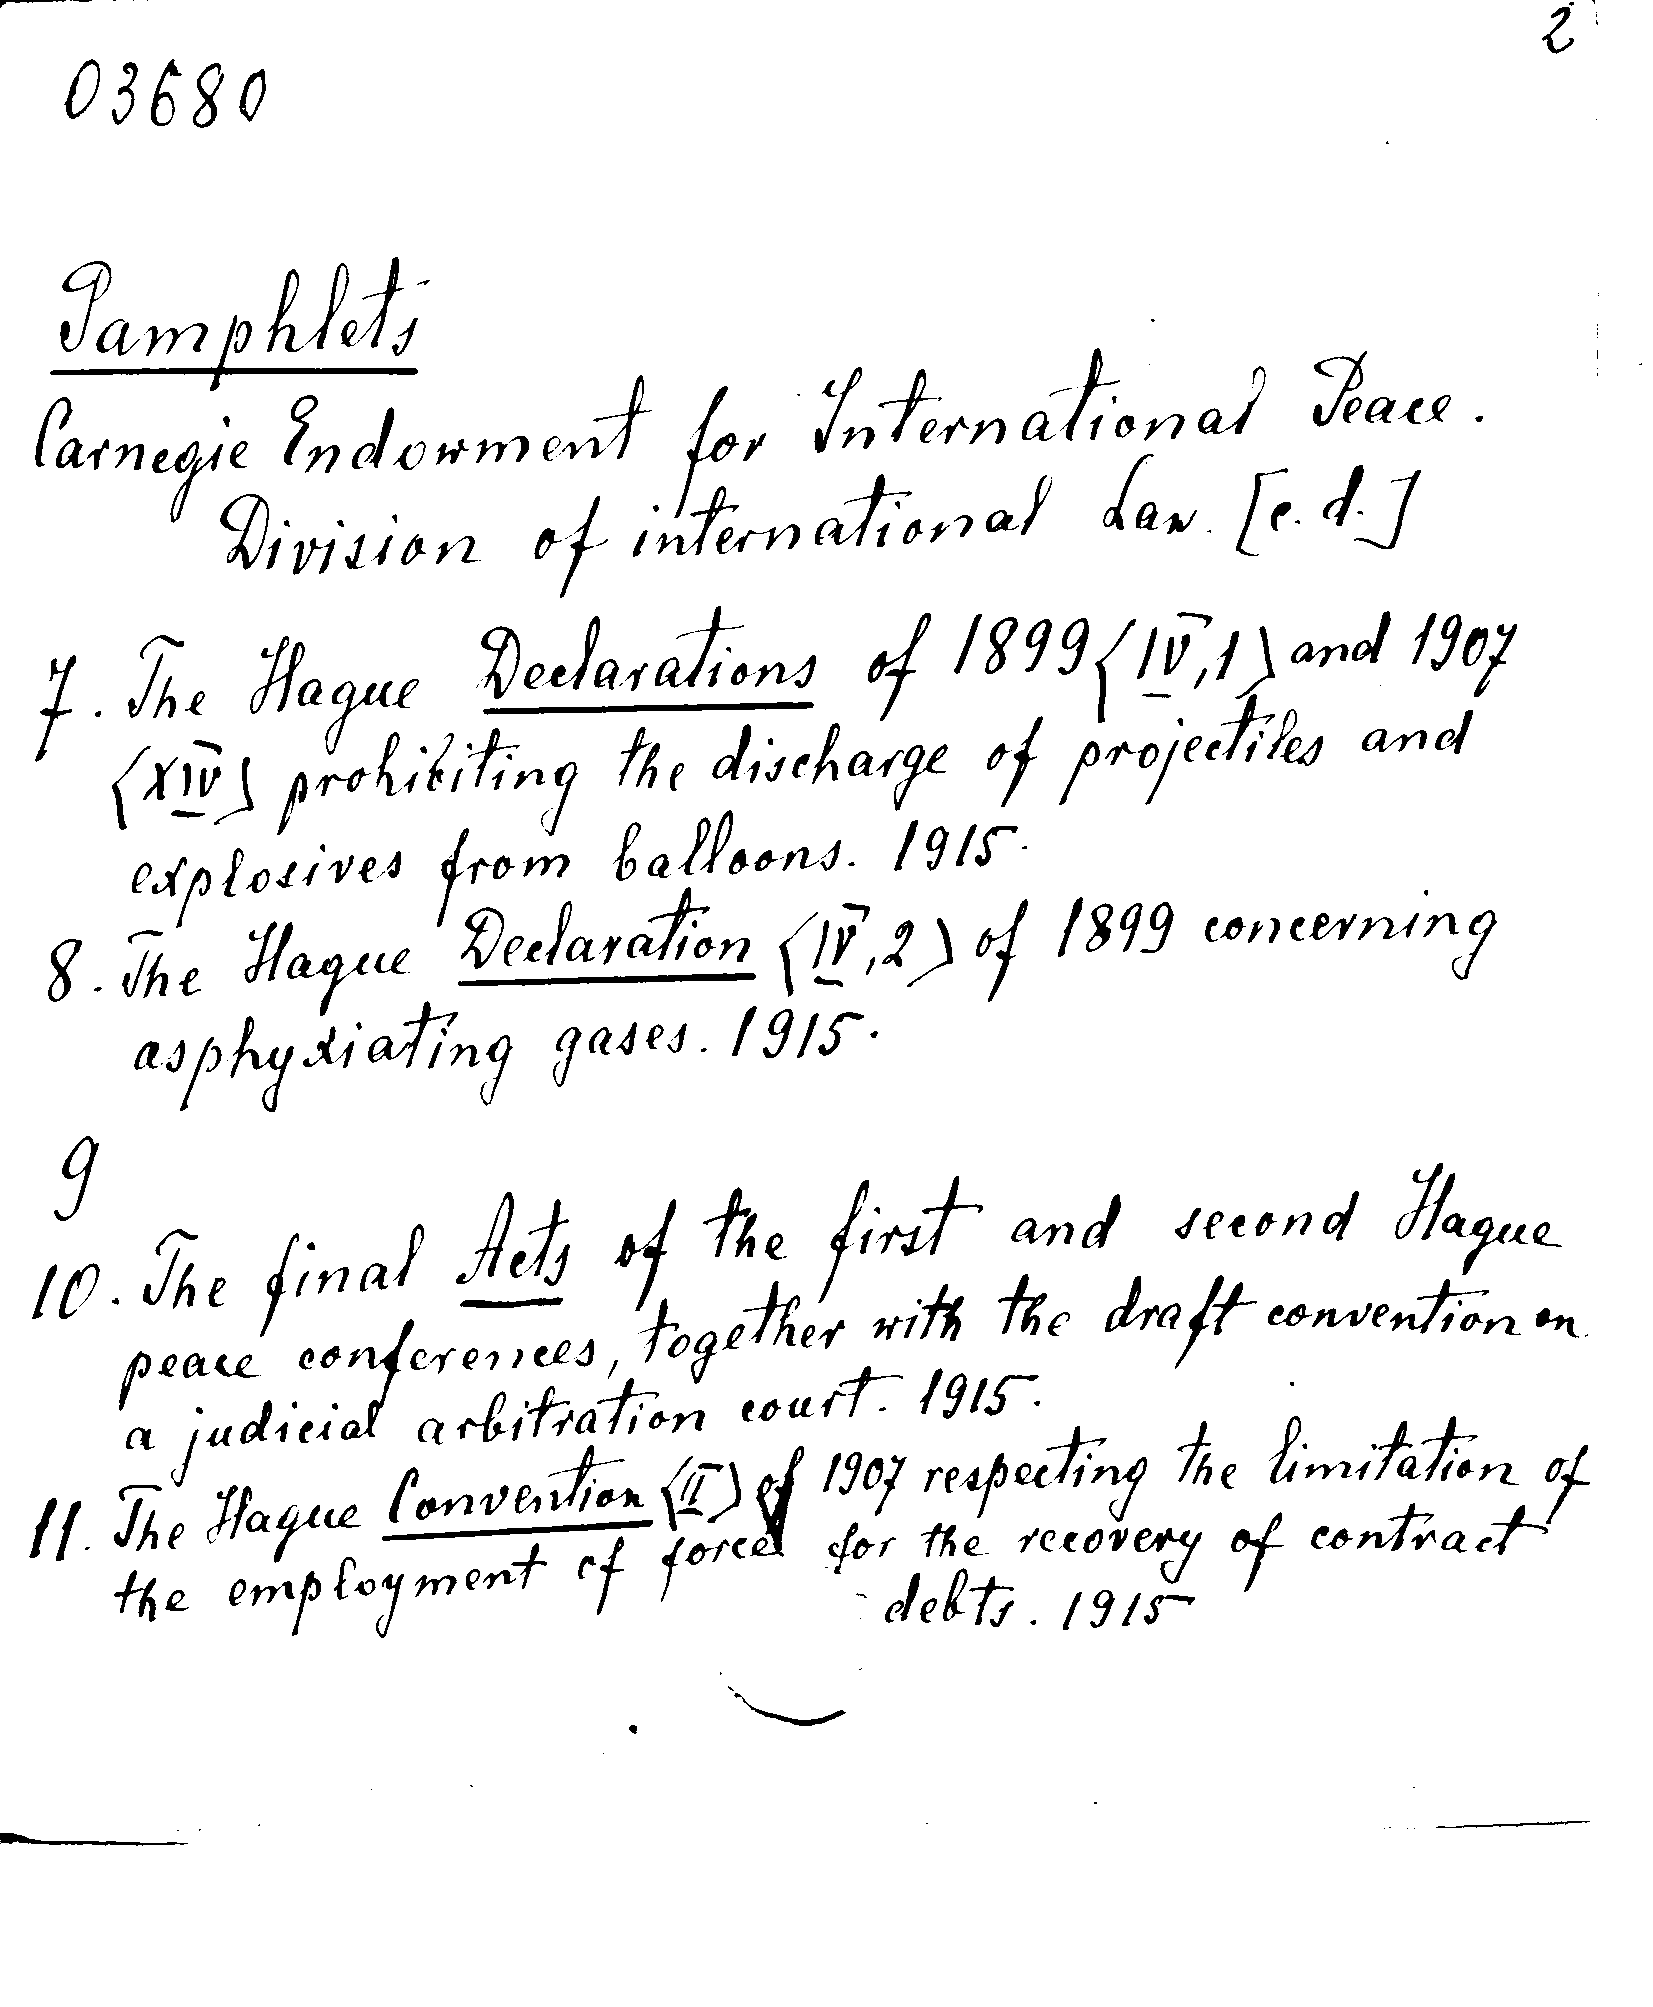 2
03680
Pamphlets
Carnegie Endowment for International Peace.
Division of international Law. [e.d.]
7. The Hague Declarations of 1899 (IV,1) and 1907
(XIV) prohibiting the discharge of projectiles and
explosives from balloons. 1915.
8. The Hague Declaration (IV,2) of 1899 concerning
asphyxiating gases. 1915.
9
10. The final Acts of the first and second Hague
peace conferences, together with the draft convention on
a judicial arbitration court. 1915.
11. The Hague Convention (II) of 1907 respecting the limitation of
the employment of force for the recovery of contract
debts. 1915